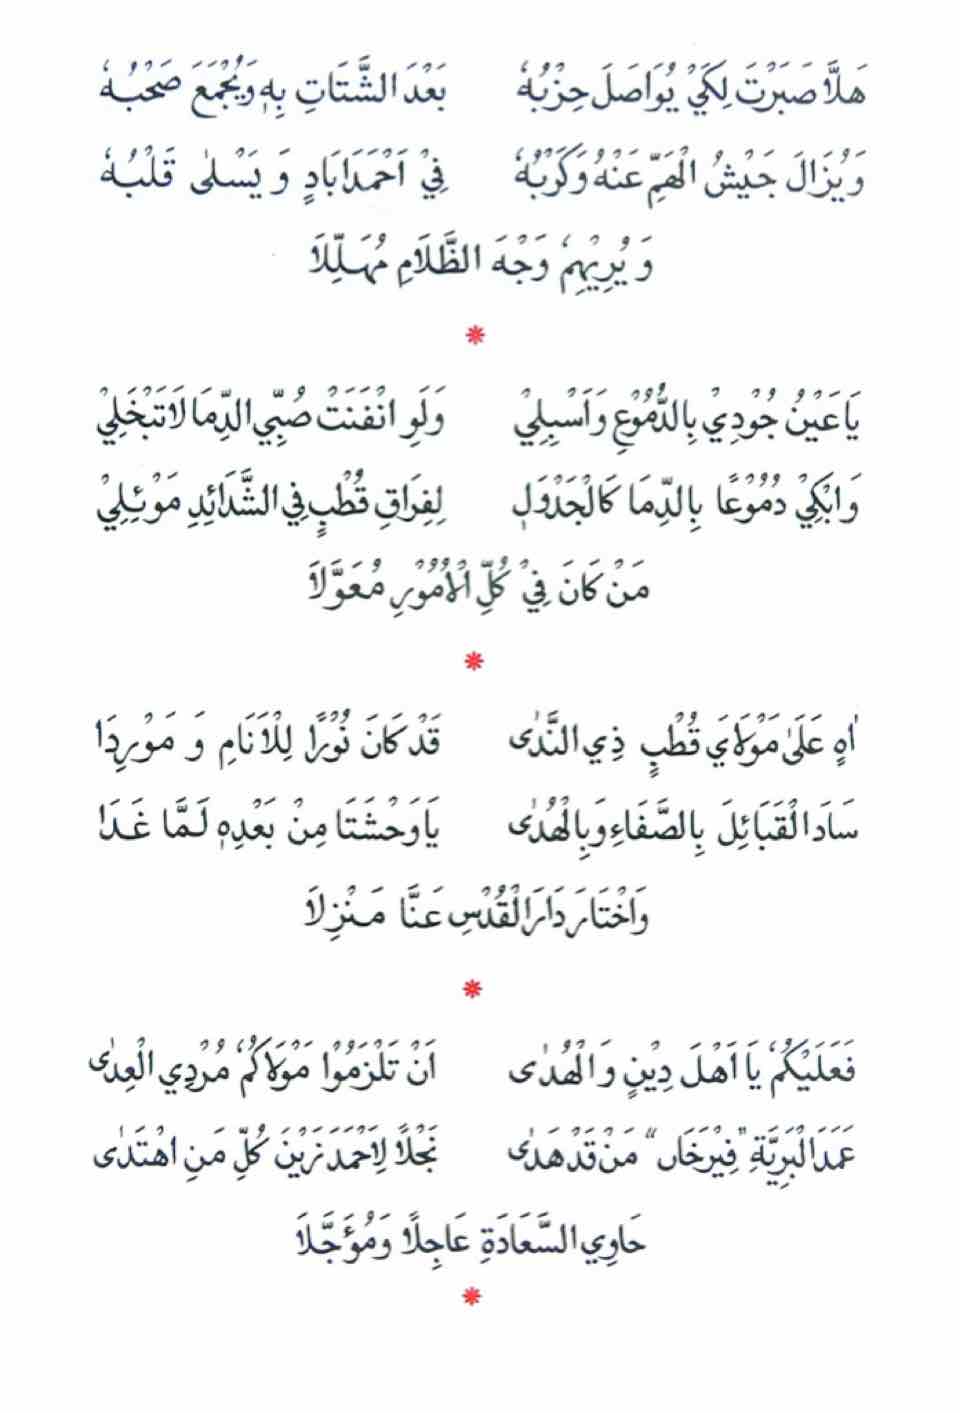 هَلَّا صَبَرْتَ لِكَيْ يُوَاصَلَ حِزْبُهٗ بَعْدَ الشَّتَاتِ بِهٖ وَيُجْمَعَ صَحْبُهٗ
وَيُزَالَ جَيْشُ الْهَمِّ عَنْهُ وَكَرْبُهٗ فِيْ اَحْمَدَابَادٍ وَ يَسْلٰى قَلْبُهٗ
وَ يُرِيْهِمْ وَجْهَ الظَّلَامِ مُهَلِّلَا
يَا عَيْنُ جُوْدِيْ بِالدُّمُوْعِ وَاَسْبِلِيْ وَلَوِ انْفَنَتْ صُبِّي الدِّمَا لَا تَبْخَلِيْ
وَابْكِيْ دُمُوْعًا بِالدِّمَا كَالْجَدْوَلِ لِفِرَاقِ قُطْبٍ فِي الشَّدَائِدِ مَوْئِلِيْ
مَنْ كَانَ فِيْ كُلِّ الْاُمُوْرِ مُعَوَّلَا
اٰهٍ عَلَىٰ مَوْلَايَ قُطْبٍ ذِي النَّدٰى قَدْ كَانَ نُوْرًا لِلْاَنَامِ وَ مَوْرِدَا
سَادَ الْقَبَائِلَ بِالصَّفَاءِ وَبِالْهُدٰى يَا وَحْشَتَا مِنْ بَعْدِهٖ لَمَّا غَدَا
وَاخْتَارَ دَارَ الْقُدْسِ عَنَّا مَنْزِلَا
فَعَلَيْكُمْ يَا اَهْلَ دِيْنٍ وَالْهُدٰى اَنْ تَلْزَمُوْا مَوْلَاكُمْ مُرْدِي الْعِدٰى
عَمَدَ الْبَرِيَّةِ "فِيْرَخَاں" مَنْ قَدْ هَدٰى نَجْلًا لِاَحْمَدَ زَيْنَ كُلِّ مَنِ اهْتَدٰى
حَاوِي السَّعَادَةِ عَاجِلًا وَمُؤَجَّلَا